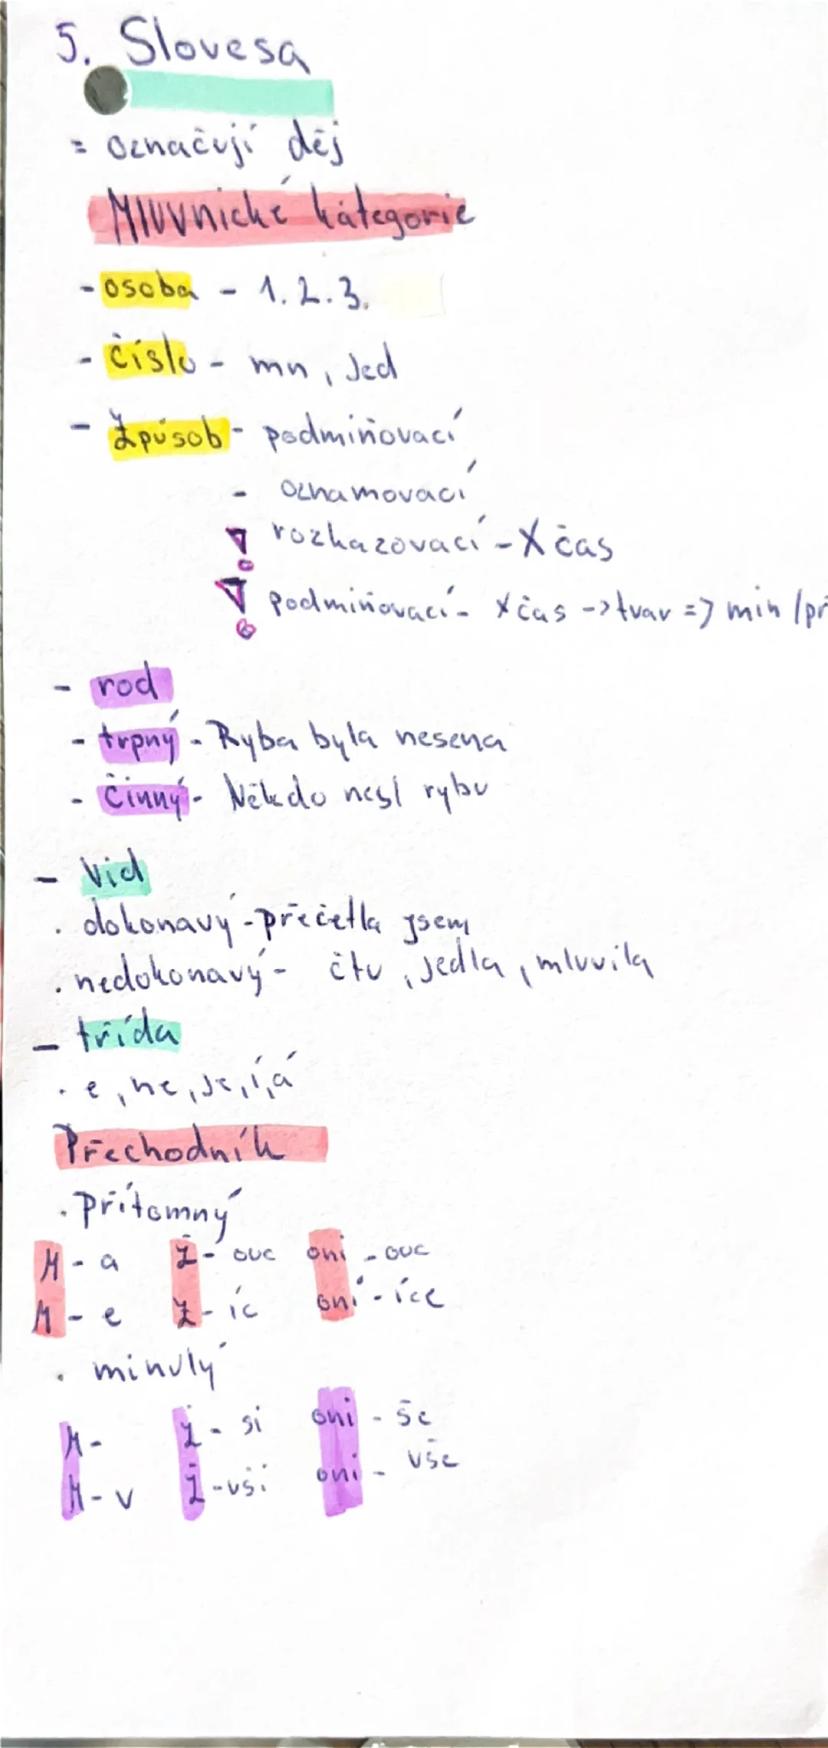 5. Slovesa
= označují děj
Mluvnické kategorie
- osoba - 1. 2. 3.
- číslo - mn, jed
- způsob - podmiňovací
- oznamovací
! rozkazovací - X čas
! podmiňovací - X čas -> tvar => min /př
- rod
- trpný - Ryba byla nesena
- činný - Někdo nesl rybu
- vid
. dokonavý - přečetla jsem
. nedokonavý - čtu, jedla, mluvila
- třída
. e, ne, je, í, á
Přechodník
. přítomný
M - a Ž - ouc oni - ouc
M - e Ž - íc oni - íce
. minulý
M - Ž - si oni - še
M - v Ž - vši oni - vše